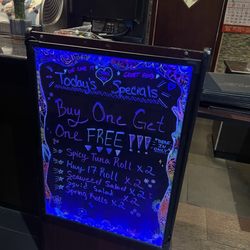 Today's Specials
Buy One Get
One FREE !!!
Spicy Tuna Roll x 2
Map 17 Roll x 2
Seaweed Salad x 2
Squid Salad x 2
Spring Rolls x 2